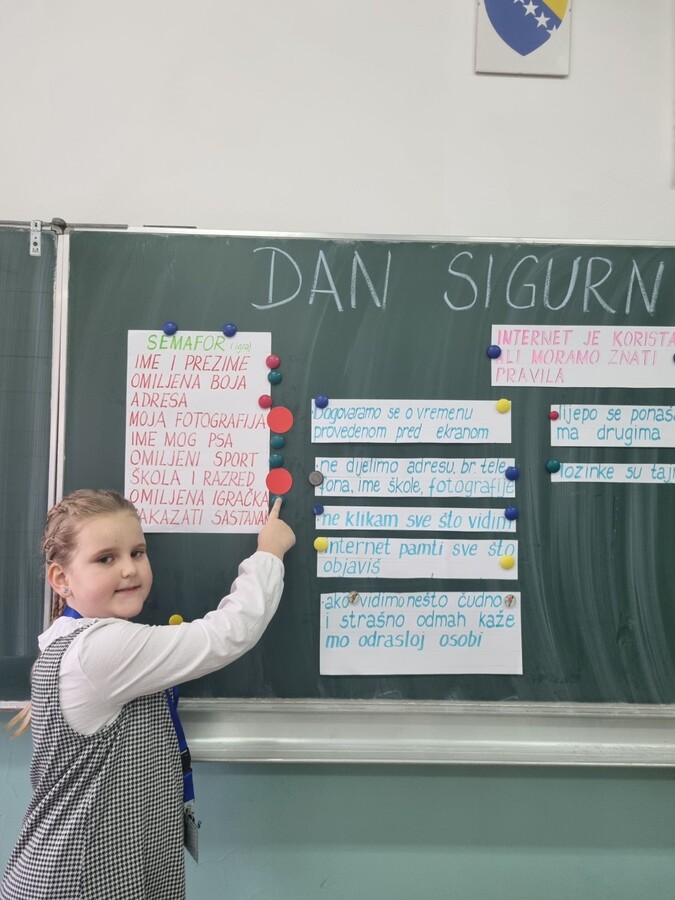 DAN SIGURN
SEMAFOR (igra)
IME I PREZIME
OMILJENA BOJA
ADRESA
MOJA FOTOGRAFIJA
IME MOG PSA
OMILJENI SPORT
ŠKOLA I RAZRED
OMILJENA IGRAČKA
ZAKAZATI SASTANAK
INTERNET JE KORISTA
ALI MORAMO ZNATI
PRAVILA
Dogovaramo se o vremenu
provedenom pred ekranom
ne dijelimo adresu, br tele
fona, ime škole, fotografije
ne klikam sve što vidim
internet pamti sve što
objaviš
ako vidimo nešto čudno
i strašno odmah kaže
mo odrasloj osobi
lijepo se ponaš
ma drugima
lozinke su taj